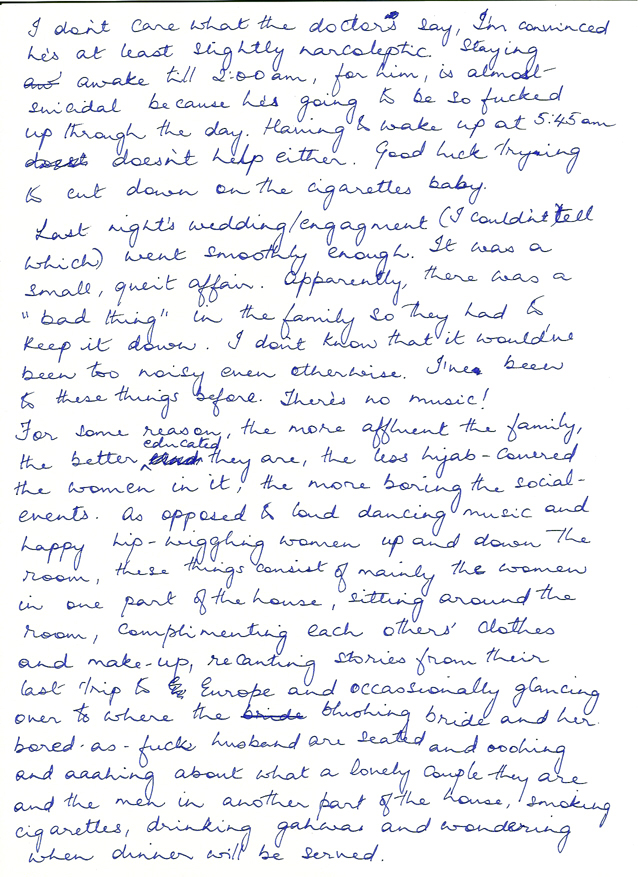 I don't care what the doctors say, I'm convinced
he's at least slightly narcoleptic. Staying
aw awake till 2:00am, for him, is almost
suicidal because he's going to be so fucked
up through the day. Having to wake up at 5:45am
doesn't help either. Good luck trying
to cut down on the cigarettes baby.
Last night's wedding/engagment (I couldn't tell
which) went smoothly enough. It was a
small, queit affair. Apparently, there was a
"bad thing" in the family so they had to
keep it down. I don't know that it would've
been too noisy even otherwise. I've been
to these things before. There's no music!
For some reason, the more affluent the family,
the better educated they are, the less hijab-covered
the women in it, the more boring the social-
events. As opposed to loud dancing music and
happy hip-wiggling women up and down the
room, these things consist of mainly the women
in one part of the house, sitting around the
room, complimenting each others' clothes
and make-up, recanting stories from their
last trip to Europe and occassionally glancing
over to where the bride blushing bride and her
bored-as-fuck husband are seated and oohing
and aaahing about what a lovely couple they are
and the men in another part of the house, smoking
cigarettes, drinking gahwas and wondering
when dinner will be served.